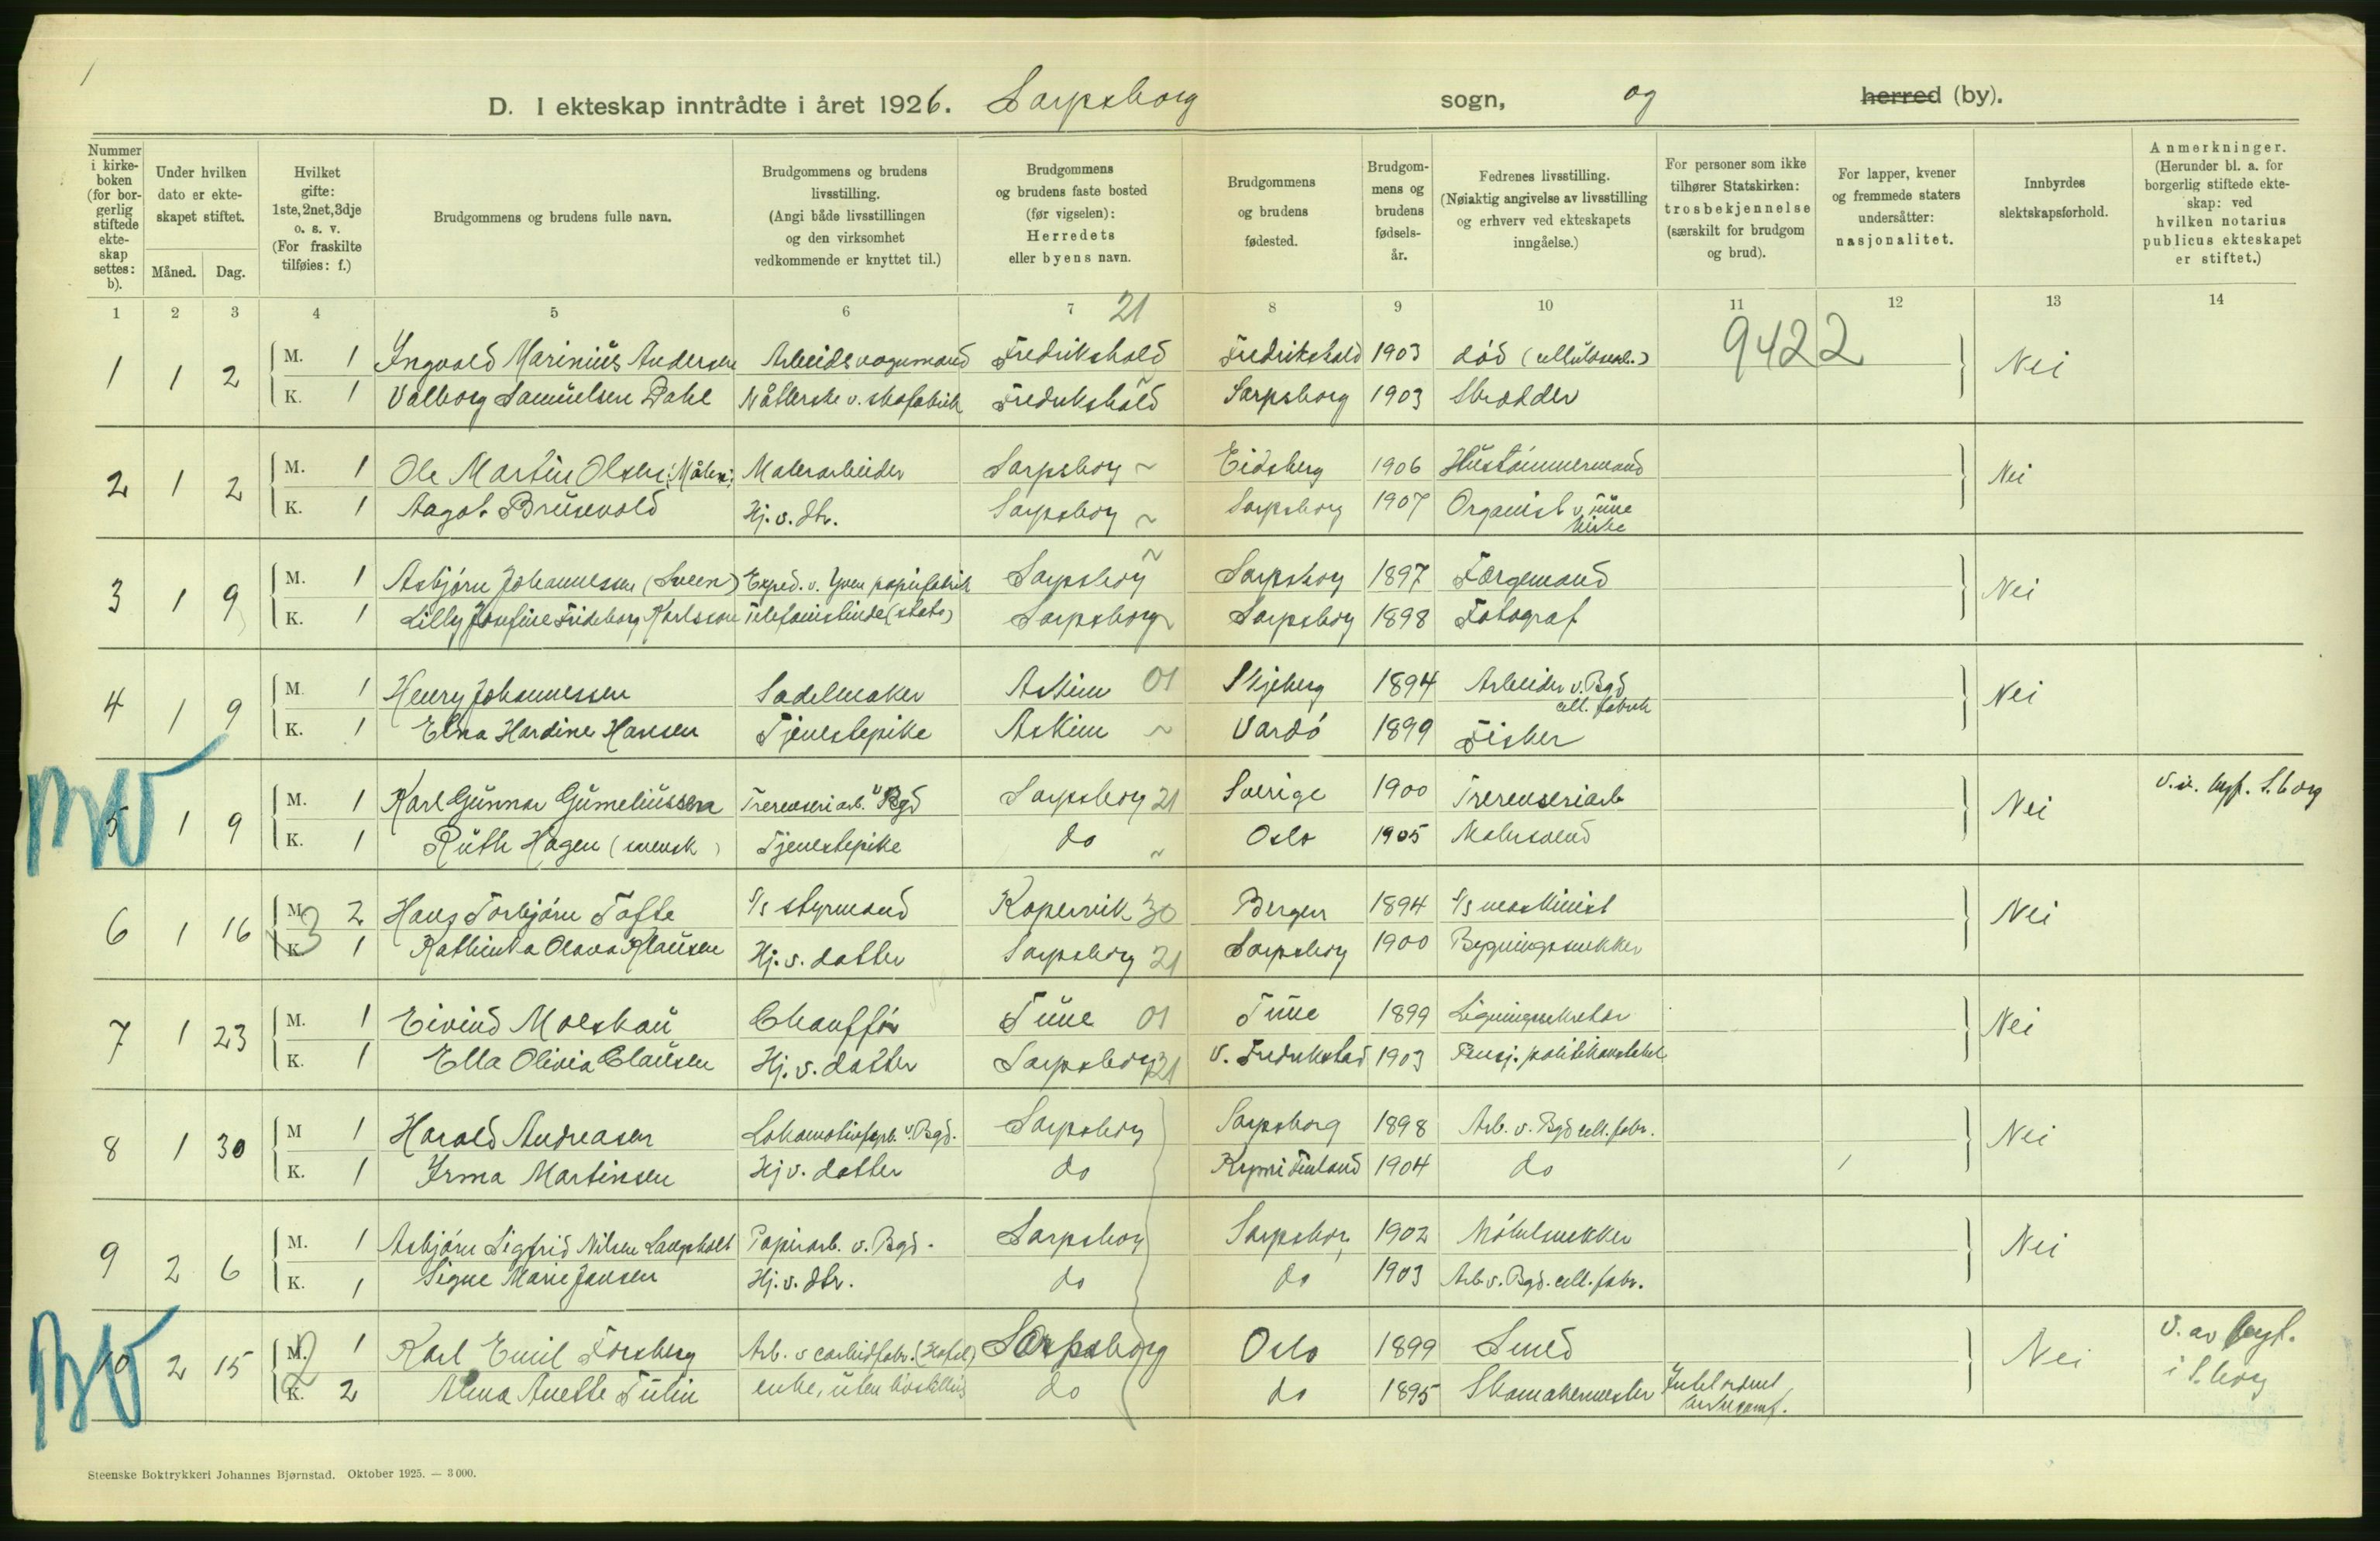 1
D. I ekteskap inntrådte i året 1926. Sarpsborg sogn, og herred (by).
Nummer i kirkeboken (for borgerlig stiftede ekteskap settes: b).
Under hvilken dato er ekteskapet stiftet.
Måned. Dag.
Hvilket gifte: 1ste, 2net, 3dje o. s. v. (For fraskilte tilføies: f.)
Brudgommens og brudens fulle navn.
Brudgommens og brudens livsstilling. (Angi både livsstillingen og den virksomhet vedkommende er knyttet til.)
Brudgommens og brudens faste bosted (før vigselen): Herredets eller byens navn.
Brudgommens og brudens fødested.
Brudgommens og brudens fødselsår.
Fedrenes livsstilling. (Nøiaktig angivelse av livsstilling og erhverv ved ekteskapets inngåelse.)
For personer som ikke tilhører Statskirken: trosbekjennelse (særskilt for brudgom og brud).
For lapper, kvener og fremmede staters undersåtter: nasjonalitet.
Innbyrdes slektskapsforhold.
Anmerkninger. (Herunder bl. a. for borgerlig stiftede ekteskap: ved hvilken notarius publicus ekteskapet er stiftet.)
1 2 3 4 5 6 7 8 9 10 11 12 13 14
21
9422
1 1 2 M. 1 Ingvald Marinius Andersen Arbeidsvognmand Fredrikshald Fredrikshald 1903 død (cellulosearb.) Nei
K. 1 Valborg Samuelsen Dahl Nåtlerske v. skofabrik Fredrikshald ~ Sarpsborg 1903 Skrædder
2 1 2 M. 1 Ole Martin Olsen Malerarbeider Sarpsborg ~ Eidsberg 1906 Hustømmermand Nei
K. 1 Aagot Brusevold Hj. v. dtr. Sarpsborg ~ Sarpsborg 1907 Organist v. Tune kirke
3 1 9 M. 1 Asbjørn Johannessen (Sveen) Exped. v. Yven papirfabrik Sarpsborg ~ Sarpsborg 1897 Færgemand Nei
K. 1 Lilly Josefine Frideborg Karlsson Telefonistinde (stats) Sarpsborg ~ Sarpsborg 1898 Fotograf
4 1 9 M. 1 Henry Johannessen Sadelmaker Askim 01 Skjeberg 1894 Arbeider v. Bgd cell. fabrik Nei
K. 1 Elna Hardine Hansen Tjenestepike Askim ~ Vardø 1899 Fisker
BV
5 1 9 M. 1 Karl Gunnar Gumeliussen Træreuseriarb. v Bgd Sarpsborg 21 Sverige 1900 Træreuseriarb Nei
K. 1 Ruth Hagen (svensk) Tjenestepike do ~ Oslo 1905 Malersvend
6 1 16 M. 3 2 Hans Torbjørn Tofte S/s styrmand Kopervik 30 Bergen 1894 S/s maskinist Nei
K. 1 Kathinka Olava Klausen Hj. v. datter Sarpsborg 21 Sarpsborg 1900 Bygningssnekker
7 1 23 M. 1 Eivind Moeskau Chauffør Tune 01 Tune 1899 Ligningssekretær Nei
K. 1 Ella Olivia Clausen Hj. v. datter Sarpsborg 21 V. Fredrikstad 1903 Pensj. politikonstabel
8 1 30 M 1 Harald Andreasen Lokomotivfyrb. v. Bgd. Sarpsborg Sarpsborg 1898 Arb. v. Bgd cell. fabr. Nei
K. 1 Irma Martinsen Hj v. datter do Kymi Finland 1904 do 1
9 2 6 M. 1 Asbjørn Sigfrid Nilsen Langsholt Papirarb. v. Bgd. Sarpsborg Sarpsborg 1902 Møbelsnekker Nei
K. 1 Signe Marie Jansen Hj. v. dtr. do do 1903 Arb v. Bgd. cell. fabr.
BV
10 2 15 M. 2 1 Karl Emil Forsberg Arb. v carbidfabr. (Hafsl) Sarpsborg Oslo 1899 Smed Nei V. av byf. i S.borg
K. 2 Alma Anette Tulin enke, uten livsstilling do do 1895 Skomakermester
Steenske Boktrykkeri Johannes Bjørnstad. Oktober 1925. — 3000.